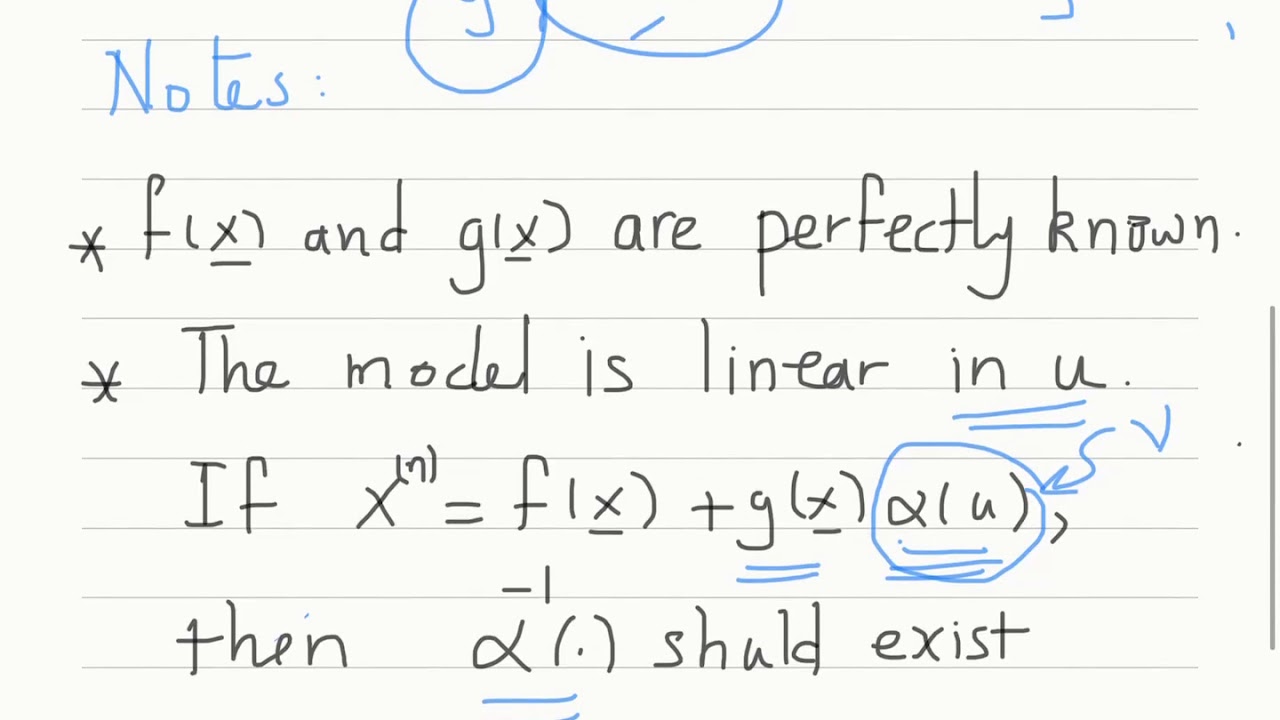 Notes:
* f(x) and g(x) are perfectly known.
* The model is linear in u.
If x⁽ⁿ⁾ = f(x) + g(x) α(u), v
then α⁻¹(.) shuld exist